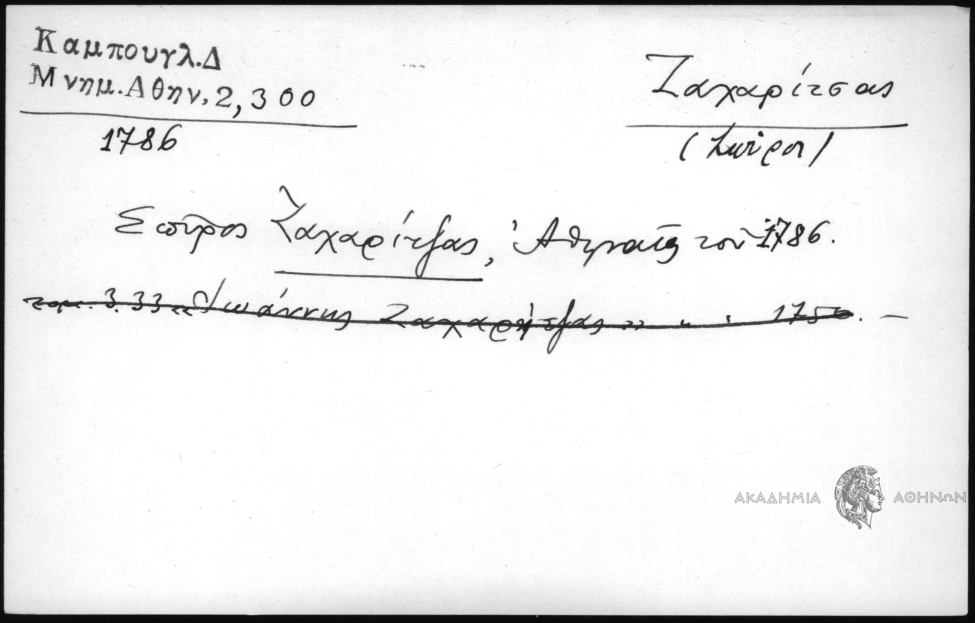 Καμπουγλ.Δ
Μνημ.Αθην.2,300
1786
Ζαχαρίτσας
(Σπύρος)
Σπῦρος Ζαχαρίτζας, Ἀθηναῖος τοῦ 1786.
τομ. 3.33 Ἰωάννης Ζαχαρήτζας 1756. —
ΑΚΑΔΗΜΙΑ ΑΘΗΝΩΝ